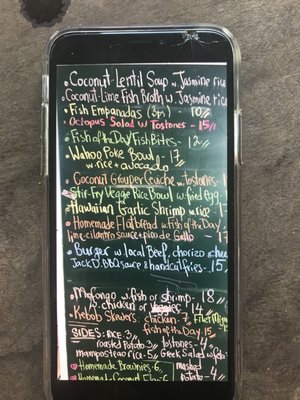 • Coconut-Lentil Soup w. Jasmine rice
Coconut-Lime Fish Broth w. Jasmine rice
• Fish Empanadas (3ps) - 10
• Octopus Salad w Tostones - 15
• Fish of the Day Fish Bites - 12
• Wahoo Poke Bowl - 17
w rice + avocado
• Coconut Grouper Ceviche w. tostones
Stir-Fry Veggie Rice Bowl w. fried egg
• Hawaiian Garlic Shrimp w rice
• Homemade Flatbread w fish of the Day
lime-cilantro sauce + Pico de Gallo
• Burger w local Beef, chorizo
Jack D. BBQ sauce & handcut fries - 15
• Mofongo w. fish or shrimp - 18
w. chicken or veggies 14
• Kebob Skewers: chicken - 7,
fish of the Day 15,
SIDES: RICE 3
roasted Potato 3 tostones - 4
mamposteao rice - 5 Greek Salad w
• Homemade Brownies - 6, mashed
Potato - 4